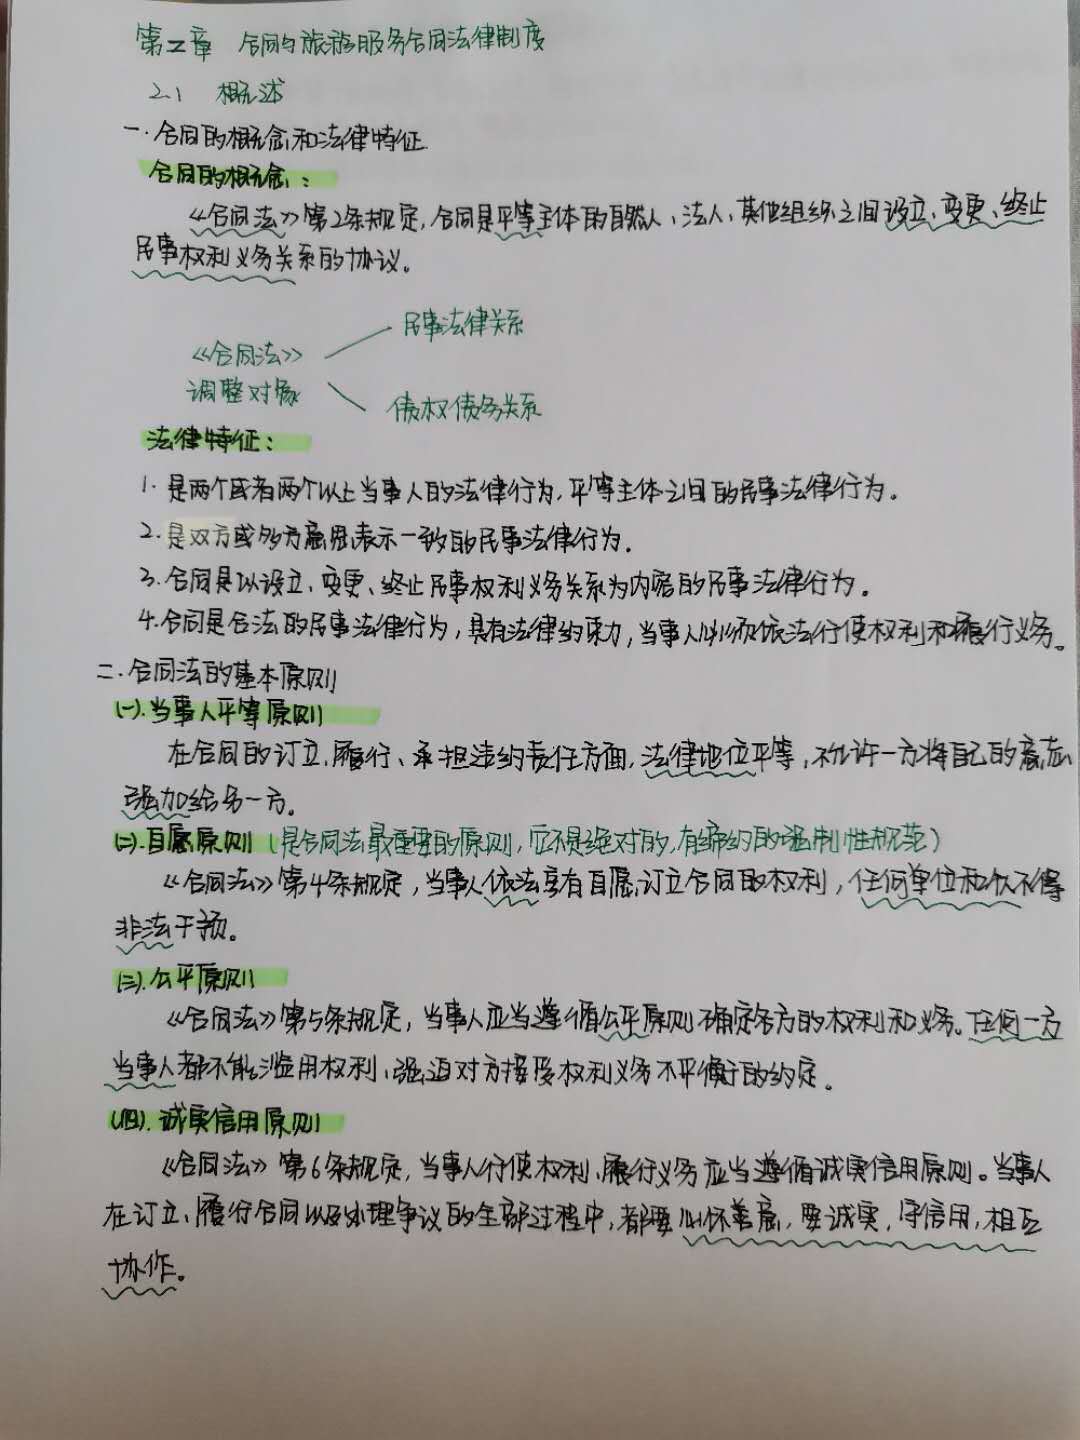 第二章 合同与旅游服务合同法律制度
2.1 概述
一.合同的概念和法律特征
合同的概念:
《合同法》第2条规定,合同是平等主体的自然人、法人、其他组织之间设立、变更、终止
民事权利义务关系的协议。
民事法律关系
《合同法》
调整对象
债权债务关系
法律特征:
1.是两个或者两个以上当事人的法律行为,平等主体之间的民事法律行为。
2.是双方或多方意思表示一致的民事法律行为.
3.合同是以设立、变更、终止民事权利义务关系为内容的民事法律行为.
4.合同是合法的民事法律行为,具有法律约束力,当事人必须依法行使权利和履行义务。
二.合同法的基本原则
(一).当事人平等原则
在合同的订立、履行、承担违约责任方面,法律地位平等,不允许一方将自己的意志
强加给另一方。
(二).自愿原则(是合同法最重要的原则,它不是绝对的,有缔约的强制性规范)
《合同法》第4条规定,当事人依法享有自愿订立合同的权利,任何单位和个人不得
非法干预。
(三).公平原则
《合同法》第5条规定,当事人应当遵循公平原则确定各方的权利和义务。任何一方
当事人都不能滥用权利、强迫对方接受权利义务不平衡的约定.
(四).诚实信用原则
《合同法》第6条规定,当事人行使权利、履行义务应当遵循诚实信用原则。当事人
在订立、履行合同以及处理争议的全部过程中,都要心怀善意,要诚实,守信用,相互
协作。